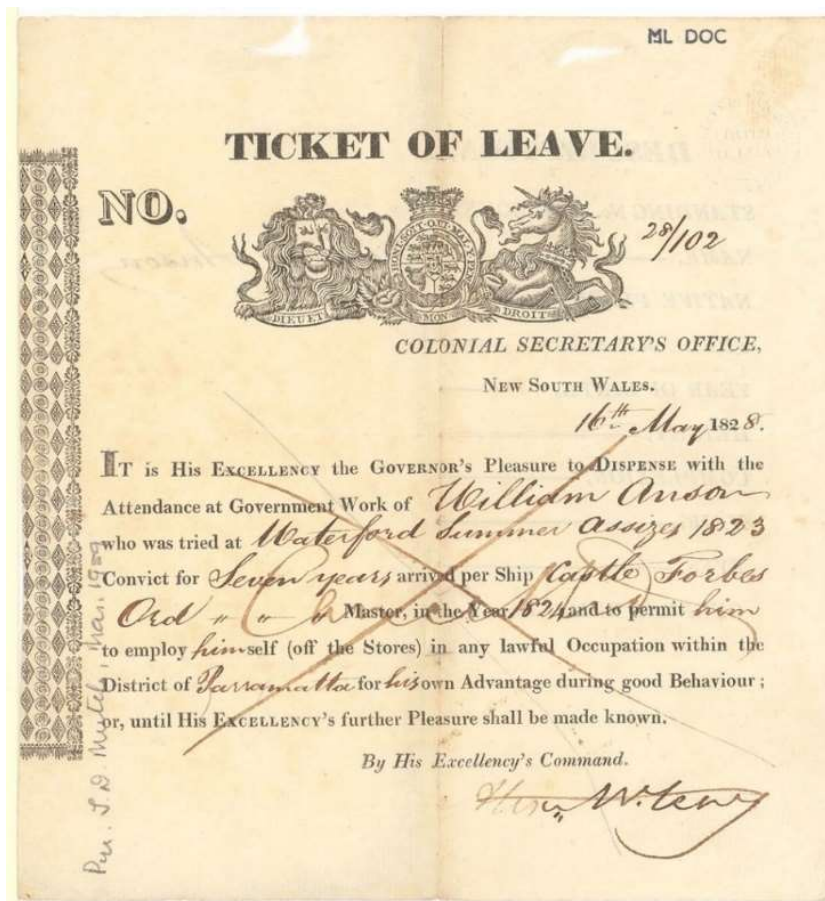 ML DOC
TICKET OF LEAVE.
NO.
28/102
HONI·SOIT·QUI·MAL·Y·PEN
DIEU ET MON DROIT
COLONIAL SECRETARY'S OFFICE,
NEW SOUTH WALES.
16th May 1828.
IT is His EXCELLENCY the GOVERNOR'S Pleasure to DISPENSE with the
Attendance at Government Work of William Anson
who was tried at Waterford Summer Assizes 1823
Convict for Seven years arrived per Ship Castle Forbes
Ord " " " Master, in the Year 1824 and to permit him
to employ himself (off the Stores) in any lawful Occupation within the
District of Parramatta for his own Advantage during good Behaviour ;
or, until His EXCELLENCY'S further Pleasure shall be made known.
By His Excellency's Command.
Pur. T. D. Mutch, Mar. 1929